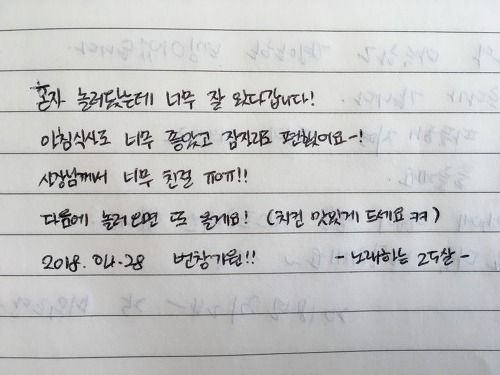 혼자 놀러왔는데 너무 잘 왔다갑니다!
아침식사도 너무 좋았고 잠자리도 편했어요~!
사장님께서 너무 친절 ㅠㅇㅠ!!
다음에 놀러오면 또 올게요! (치킨 맛있게 드세요 ㅋㅋ)
2018. 04. 28 번창기원!! - 노래하는 25살 -